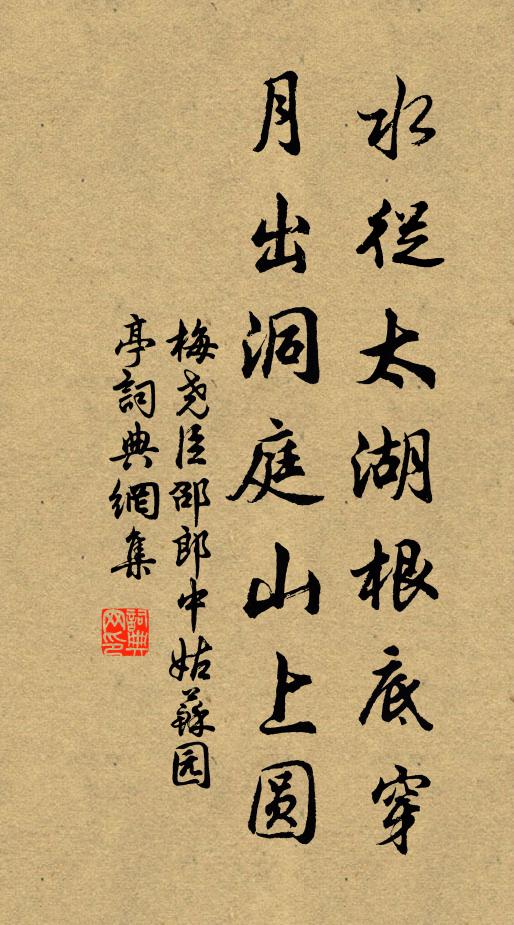 水從太湖根底穿
月出洞庭山上圆
梅尧臣邵郎中姑蘇园
亭詞典網集
詞典网印